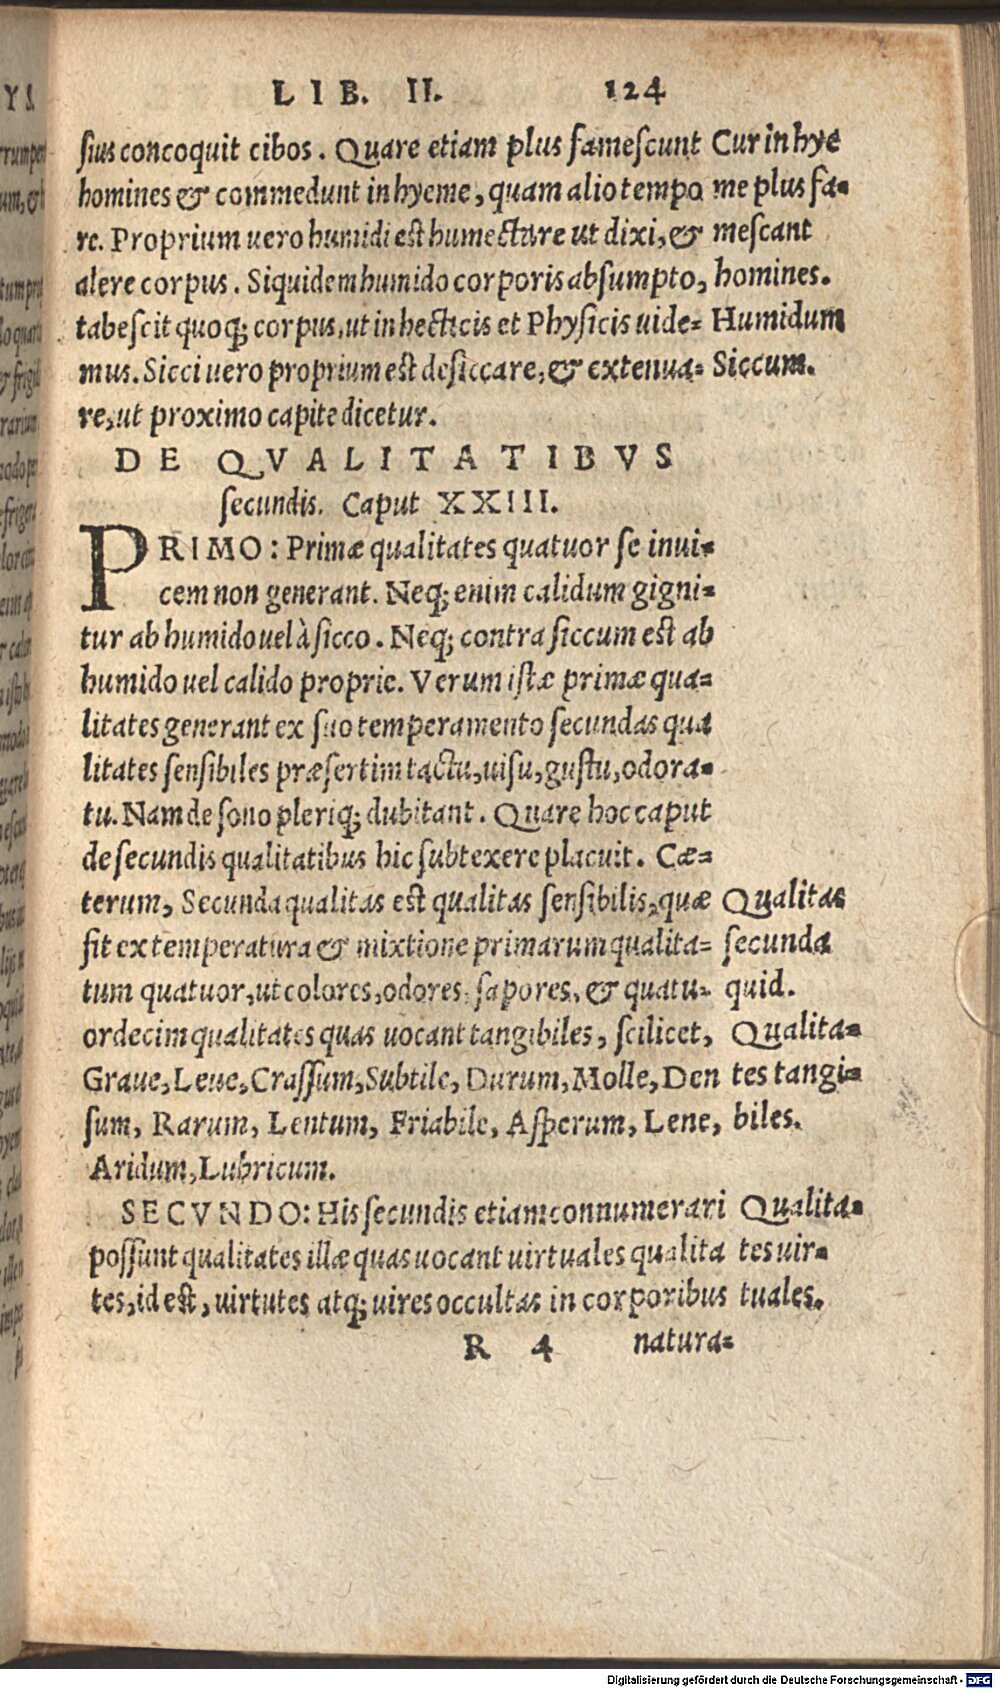 LIB. II. 124
sius concoquit cibos. Quare etiam plus famescunt
homines & commedunt in hyeme, quam alio tempo
re. Proprium uero humidi est humectare ut dixi, &
alere corpus. Siquidem humido corporis absumpto,
tabescit quoq; corpus, ut in hecticis et Physicis uide=
mus. Sicci uero proprium est desiccare, & extenua=
re, ut proximo capite dicetur.
Cur in hye
me plus fa=
mescant
homines.
Humidum
Siccum.
DE QVALITATIBVS
secundis. Caput XXIII.
PRIMO: Primæ qualitates quatuor se inui=
cem non generant. Neq; enim calidum gigni=
tur ab humido uel à sicco. Neq; contra siccum est ab
humido uel calido proprie. Verum istæ primæ qua=
litates generant ex suo temperamento secundas qua
litates sensibiles præsertim tactu, uisu, gustu, odora=
tu. Nam de sono pleriq; dubitant. Quare hoc caput
de secundis qualitatibus hic subtexere placuit. Cæ=
terum, Secunda qualitas est qualitas sensibilis, quæ
fit ex temperatura & mixtione primarum qualita=
tum quatuor, ut colores, odores, sapores, & quatu=
ordecim qualitates quas uocant tangibiles, scilicet,
Graue, Leue, Crassum, Subtile, Durum, Molle, Den
sum, Rarum, Lentum, Friabile, Asperum, Lene,
Aridum, Lubricum.
Qualitas
secunda
quid.
Qualita=
tes tangi=
biles.
SECVNDO: His secundis etiam connumerari
possunt qualitates illæ quas uocant uirtuales qualita
tes, id est, uirtutes atq; uires occultas in corporibus
Qualita=
tes uir=
tuales.
R 4 natura=
Digitalisierung gefördert durch die Deutsche Forschungsgemeinschaft - DFG